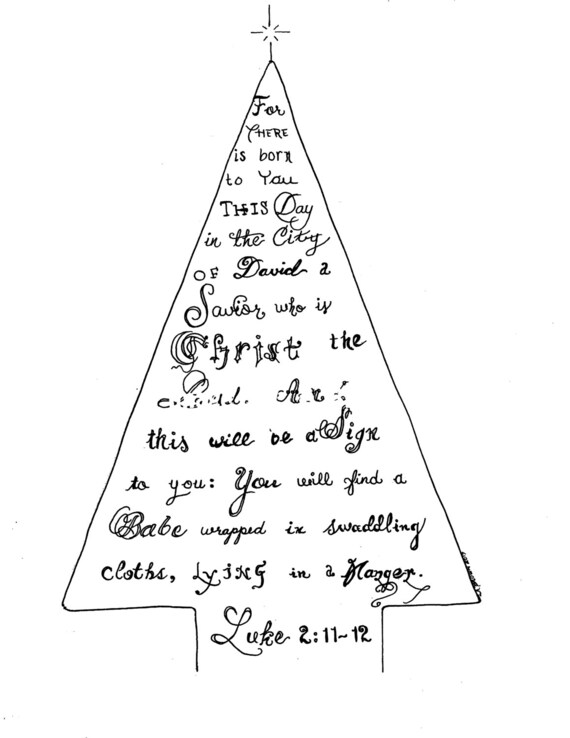 For
THERE
is born
to You
THIS Day
in the City
OF David a
Savior, who is
Christ the
And
this will be a Sign
to you: You will find a
Babe wrapped in swaddling
cloths, LYING in a Manger.
Luke 2:11-12